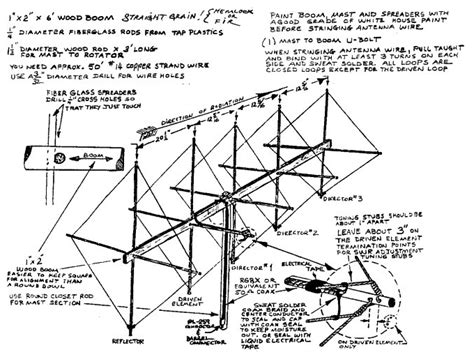 1" x 2" x 6' WOOD BOOM STRAIGHT GRAIN. {HEMLOCK OR FIR
1/4" DIAMETER FIBERGLASS RODS FROM TAP PLASTICS
DIAMETER WOOD ROD X 3' LONG
FOR MAST TO ROTATOR
YOU NEED APPROX. 50' #14 COPPER STRAND WIRE
USE A 3/32" DIAMETER DRILL FOR WIRE HOLES
PAINT BOOM, MAST AND SPREADERS WITH
A GOOD GRADE OF WHITE HOUSE PAINT
BEFORE STRINGING ANTENNA WIRE.
(1) MAST TO BOOM U-BOLT
WHEN STRINGING ANTENNA WIRE, PULL TAUGHT
AND BIND WITH AT LEAST 3 TURNS ON EACH
SIDE AND SWEAT SOLDER. ALL LOOPS ARE
CLOSED LOOPS EXCEPT FOR THE DRIVEN LOOP
FIBER GLASS SPREADERS
DRILL 1/4" CROSS HOLES SO
THAT THEY JUST TOUCH
BOOM
DIRECTION OF RADIATION
1" X 2"
WOOD BOOM
EASIER TO KEEP SQUARE
FOR ALIGNMENT THAN
A ROUND BOWL
USE ROUND CLOSET ROD
FOR MAST SECTION
REFLECTOR
DRIVEN
ELEMENT
DIRECTOR #1
DIRECTOR #2
DIRECTOR #3
PL-259
CONNECTOR
&
BARREL
CONNECTOR
RG8X OR
EQUIVALENT
50 Ω COAX
SWEAT SOLDER
COAX BRAID AND
CENTER CONDUCTOR
TO SEAL AND CAP
WITH COAX SEAL
TO KEEP MOISTURE
OUT. OR SEAL WITH
LIQUID ELECTRICAL
TAPE
ELECTRICAL
TAPE
TUNING STUBS SHOULD BE
ABOUT 1" APART
LEAVE ABOUT 3" ON
THE DRIVEN ELEMENT
TERMINATION POINTS
FOR SWR ADJUSTMENT
TUNING STUBS
ON DRIVEN ELEMENT